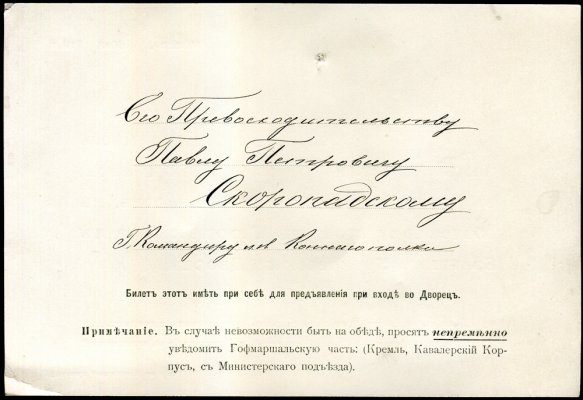 Его Превосходительству
Павлу Петровичу
Скоропадскому
Г. Командиру л. гв. Коннаго полка
Билетъ этотъ имѣть при себѣ для предъявленія при входѣ во Дворецъ.
Примѣчаніе. Въ случаѣ невозможности быть на обѣдѣ, просятъ непремѣнно
увѣдомить Гофмаршальскую часть: (Кремль, Кавалерскій Кор-
пусъ, съ Министерскаго подъѣзда).